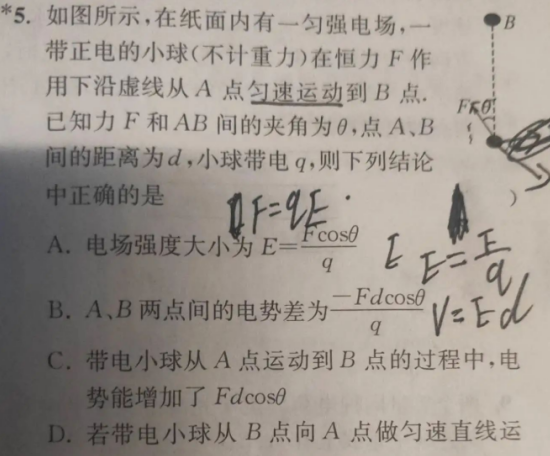 *5. 如图所示,在纸面内有一匀强电场,一
带正电的小球(不计重力)在恒力 F 作
用下沿虚线从 A 点匀速运动到 B 点.
已知力 F 和 AB 间的夹角为 θ,点 A、B
间的距离为 d,小球带电 q,则下列结论
中正确的是 )
B
F θ
F=qE
A. 电场强度大小为 E=Fcosθ/q
E E=F/q
B. A、B 两点间的电势差为 -Fdcosθ/q
V=Ed
C. 带电小球从 A 点运动到 B 点的过程中,电
势能增加了 Fdcosθ
D. 若带电小球从 B 点向 A 点做匀速直线运